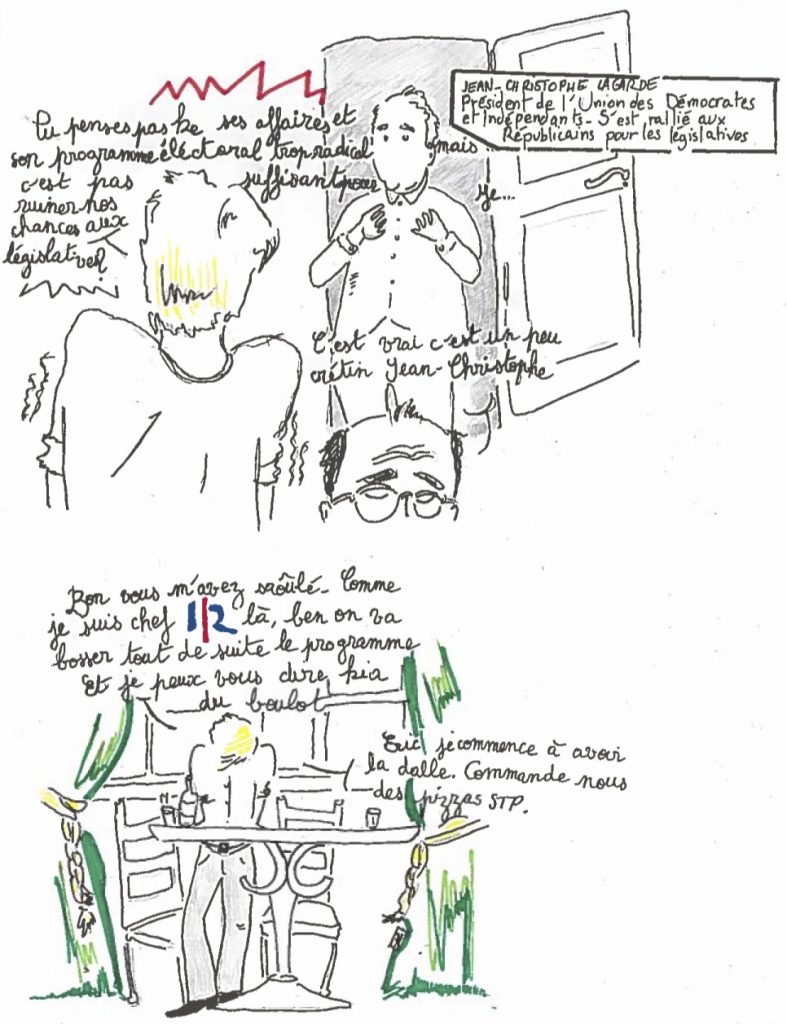 JEAN-CHRISTOPHE LAGARDE
Président de l'Union des Démocrates
et Indépendants. S'est rallié aux
Républicains pour les législatives
Tu penses pas ke ses affaires et
son programme éléctoral trop radical
c'est pas suffisant pour
ruiner nos
chances aux
législatives?
mais
je...
C'est vrai c'est un peu
crétin Jean-Christophe
Bon vous m'avez saôûlé. Comme
je suis chef 1/2 là, ben on va
bosser tout de suite le programme
Et je peux vous dire kia
du boulot
Eric je commence à avoir
la dalle. Commande nous
des pizzas STP.